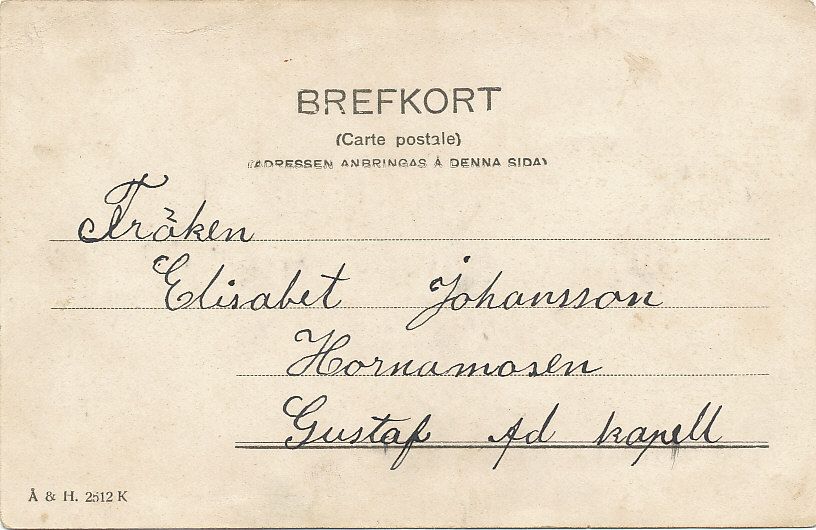 BREFKORT
(Carte postale)
(ADRESSEN ANBRINGAS Å DENNA SIDA)
Fröken
Elisabet Johansson
Hornamosen
Gustaf Ad kapell
Å & H. 2512 K